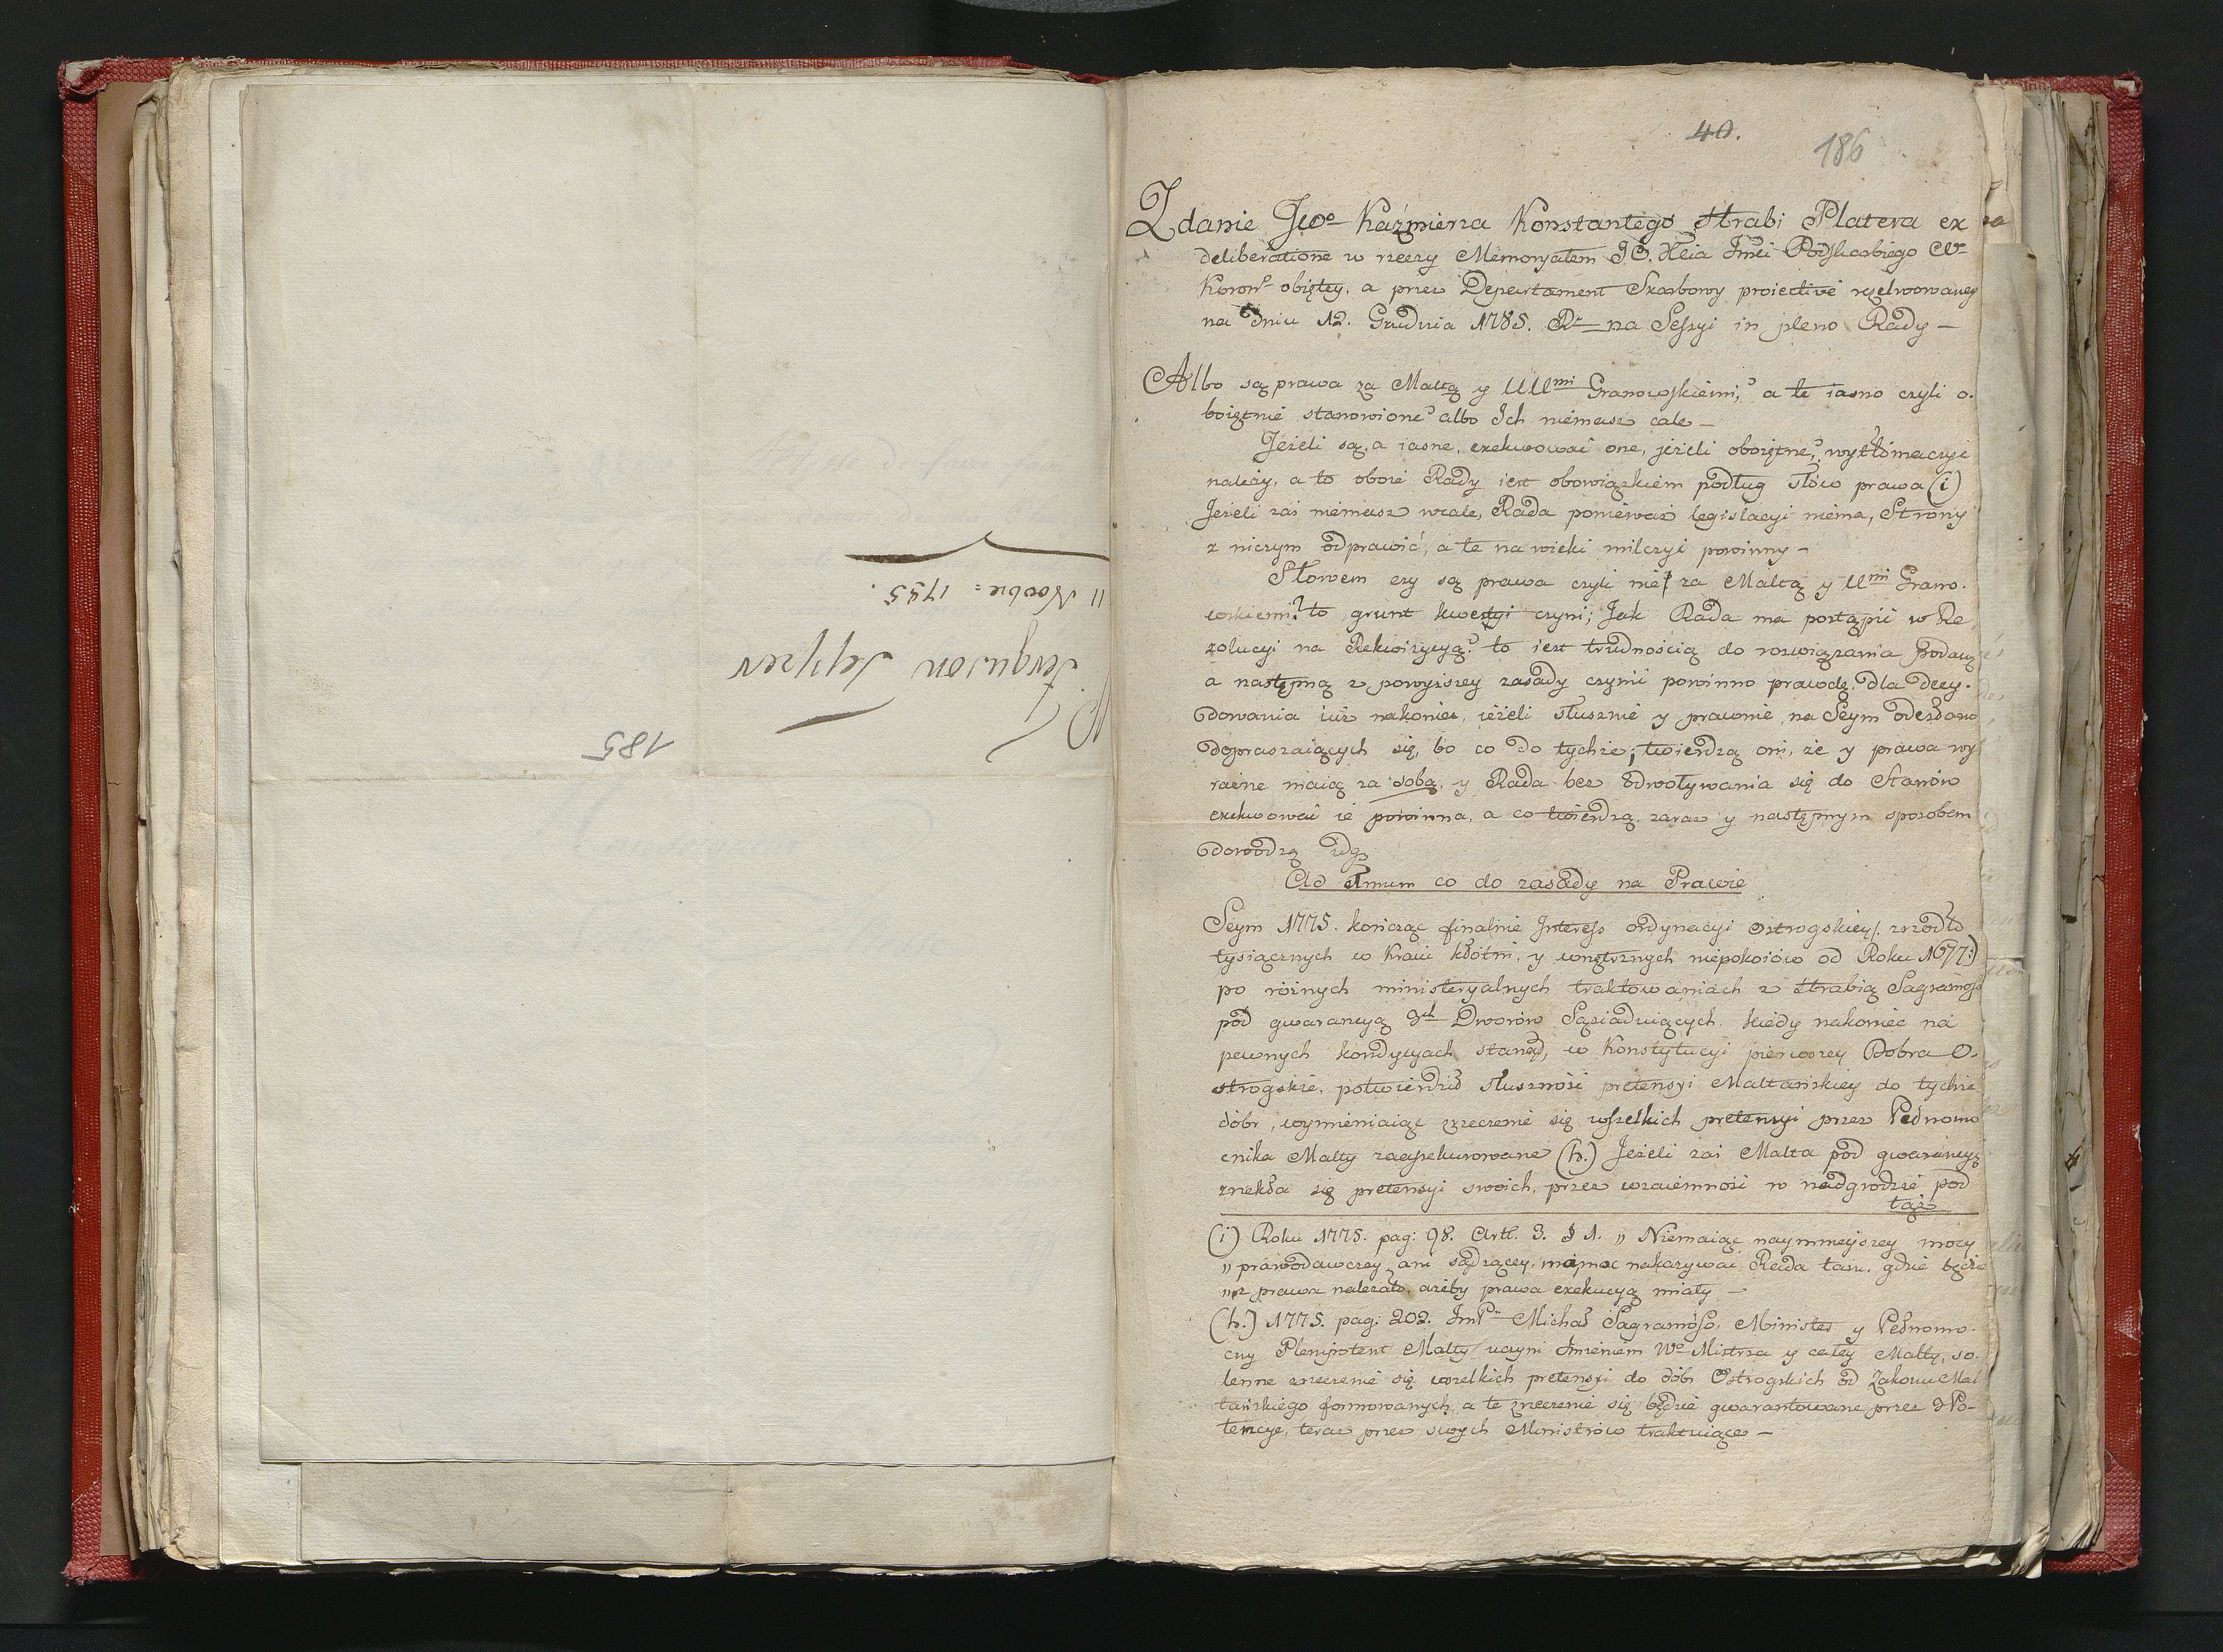 P. Ferguson Tepper
11 Novbre: 1785.
185
40.
186
Zdanie JWo Kaźmierza Konstantego Hrabi Platera ex
deliberatione w rzeczy Memoryałem JO. Xcia Jmci Podskarbiego W
Koronn obiętey, a przez Departament Skarbowy proiective rezolwowaney
na dniu 12. Grudnia 1785. R na Sessyi in pleno Rady —
Albo są prawa za Maltą y UUmi Granowskiemi, a te iasno czyli o-
boiętnie stanowione? albo Ich niemasz cale —
Jeżeli są, a iasne, exekwować one, jeżeli oboiętne, wytłómaczyć
należy, a to oboie Rady iest obowiązkiem podług słów prawa (i)
Jeżeli zaś niemasz wcale, Rada poniéważ legislacyi niéma, Strony
z niczym odprawić, a te na wieki milczyć powinny —
Słowem czy są prawa czyli nie? za Maltą y Umi Grano-
wskiemi? to grunt kwestyi czyni; Jak Rada ma postąpić w Re
zolucyi na Rekwizycyą? to iest trudnością do rozwiązania podaną
a następną z powyższey zasady czynić powinno prawdę, dla decy-
dowania iuż nakoniec, ieżeli słusznie y prawnie na Seym odesłano
dopraszaiących się, bo co do tychże; twierdzą oni, że y prawa wy
raźne maią za sobą, y Rada bez odwoływania się do Stanów
exekwować ie powinna, a co twierdzą, zaraz y następnym sposobem
dowodzą
Ad 1mum co do zasady na Prawie
Seym 1775. kończąc finalnie Interess ordynacyi Ostrogskiey /: zrzódło
tysiącznych w Kraiu kłótni, y wnętrznych niepokoiów od Roku 1677:)
po różnych ministeryalnych traktowaniach z Hrabią Sagramoso
pod gwarancyą 3ch Dworów Sąsiaduiących. kiedy nakoniec na
pewnych kondycyach stanął, w Konstytucyi pierwszey Dobra O-
strogskie, potwierdził słuszność pretensyi Maltańskiey do tychże
dóbr, wymieniaiąc zrzeczenie się wszelkich pretensyi przez Pełnomo
cnika Malty zaassekurowane (h.) Jeżeli zaś Malta pod gwarancyą
zrzekła się pretensyi swoich, przez wzaiemność w nadgrodzie pod
taż
(i) Roku 1775. pag: 98. Artl. 3. § 1. „ Niemaiąc naymnieyszey mocy
„ prawodawczey, ani sądzącey, maiąc nakazywać Rada tam, gdzie będzie
„ z prawa należało, ażeby prawa exekucyą miały —
(h.) 1775. pag: 202. ImP Michał Sagramoso, Minister y Pełnomo-
cny Plenipotent Malty uczyni Imieniem Wo Mistrza y całey Malty, so-
lenne zrzeczenie się wszelkich pretensyi do dóbr Ostrogskich od Zakonu Mal
tańskiego formowanych, a te zrzeczenie się będzie gwarantowane przez 3 Po-
tencye, teraz przez swych Ministrów traktuiące —